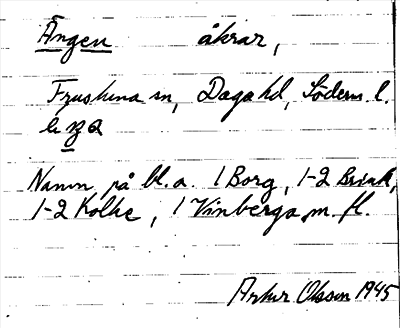 Ängen åkrar,
Frustuna sn, Daga hd, Söderm. l.
Namn på bl.a. 1 Borg, 1-2 Brink,
1-2 Kolke, 1 Vinberga m. fl.
Artur Olsson 1945